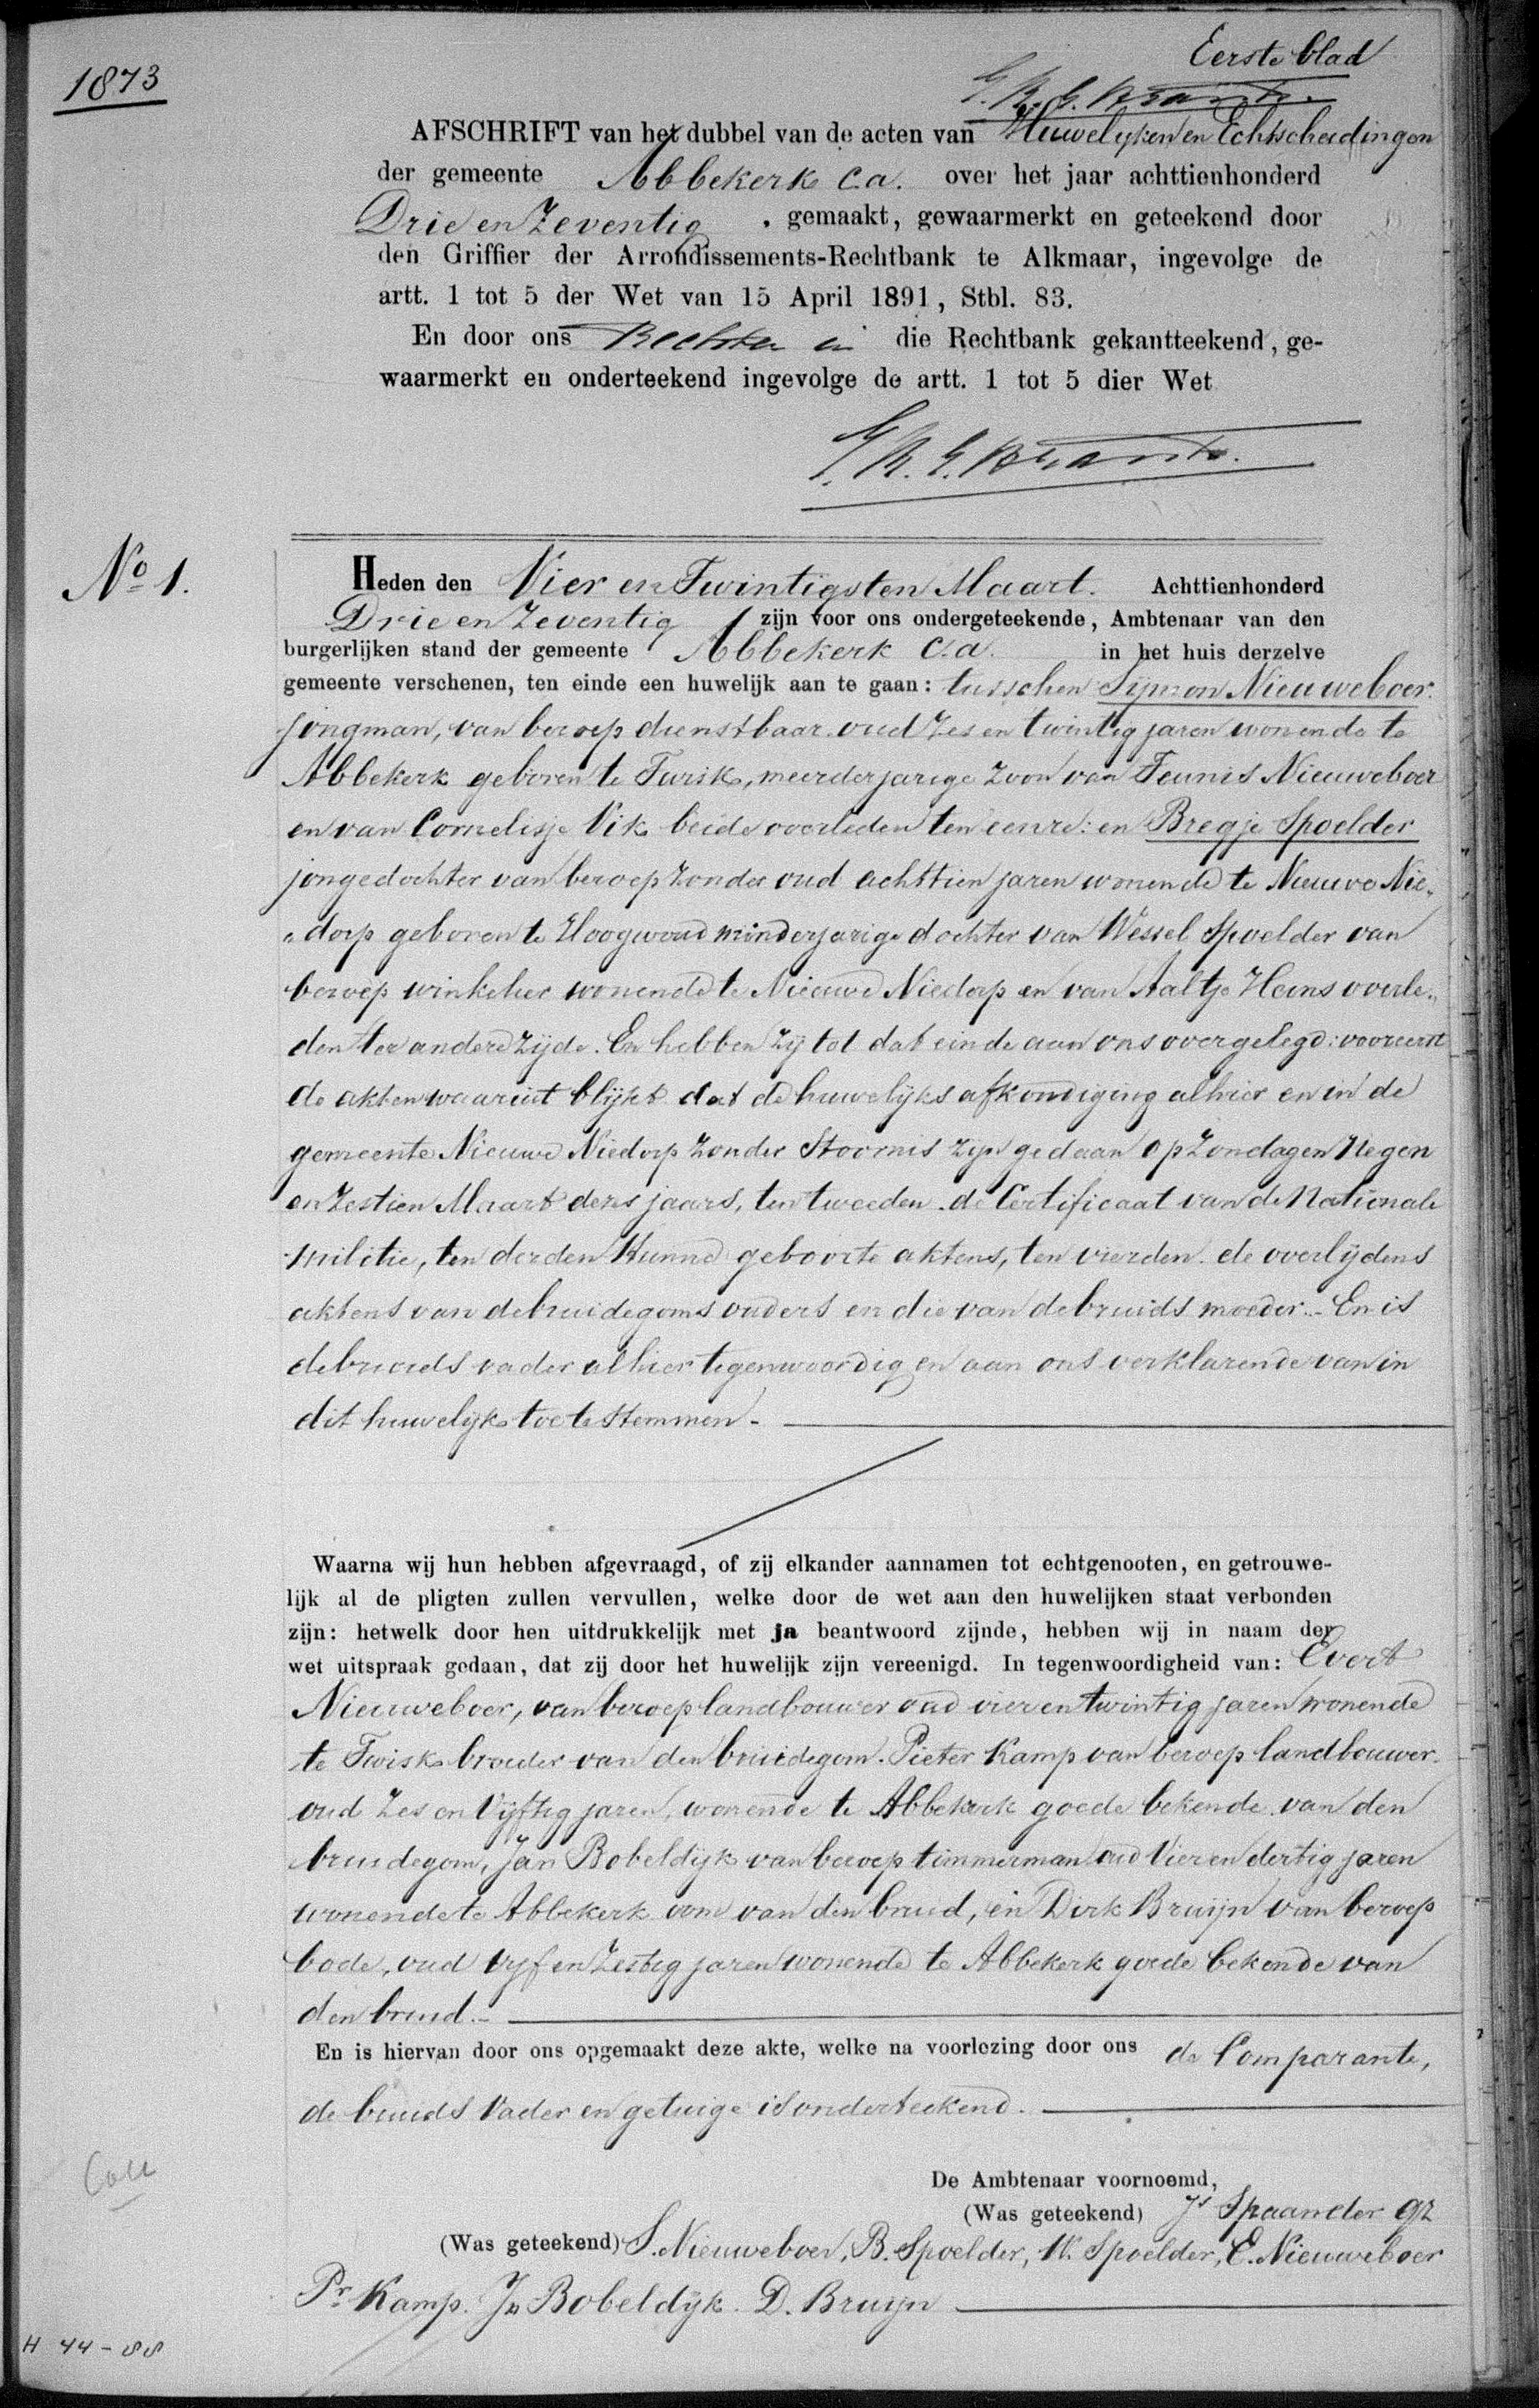 Eerste blad
1873
AFSCHRIFT van het dubbel van de acten van Huwelijken en Echtscheidingen
der gemeente Abbekerk c.a. over het jaar achttienhonderd
Drie en Zeventig, gemaakt, gewaarmerkt en geteekend door
den Griffier der Arrondissements-Rechtbank te Alkmaar, ingevolge de
artt. 1 tot 5 der Wet van 15 April 1891, Stbl. 83.
En door ons Rechter in die Rechtbank gekantteekend, ge-
waarmerkt en onderteekend ingevolge de artt. 1 tot 5 dier Wet
No 1.
Heden den Vier en Twintigsten Maart. Achttienhonderd
Drie en Zeventig zijn voor ons ondergeteekende, Ambtenaar van den
burgerlijken stand der gemeente Abbekerk c.a. in het huis derzelve
gemeente verschenen, ten einde een huwelijk aan te gaan: tusschen Sijmon Nieuweboer.
jongman, van beroep dienstbaar oud Zes en twintig jaren wonende te
Abbekerk geboren te Twisk, meerderjarige zoon van Teunis Nieuweboer
en van Cornelisje Vik beide overleden ten eenre: en Bregje Spoelder
jongedochter van beroep zonder oud achttien jaren wonende te Nieuwe Nie„
„dorp geboren te Hoogwoud minderjarige dochter van Wessel Spoelder van
beroep winkelier wonende te Nieuwe Niedorp en van Aaltje Heins overle„
den ter andere zijde. En hebben zij tot dat einde aan ons overgelegd: vooreerst
de akten waaruit blijkt dat de huwelijks afkondiging alhier en in de
gemeente Nieuwe Niedorp zonder Stoornis zijn gedaan op Zondagen Negen
en Zestien Maart dezes jaars, ten tweeden. de Certificaat van de Nationale
militie, ten derden Hunne geboorte aktens, ten vierden. de overlijdens
aktens van de bruidegoms ouders en die van de bruids moeder. - En is
de bruids vader alhier tegenwoordig en aan ons verklarende van in
dit huwelijk toe te stemmen. -
Waarna wij hun hebben afgevraagd, of zij elkander aannamen tot echtgenooten, en getrouwe-
lijk al de pligten zullen vervullen, welke door de wet aan den huwelijken staat verbonden
zijn: hetwelk door hen uitdrukkelijk met ja beantwoord zijnde, hebben wij in naam der
wet uitspraak gedaan, dat zij door het huwelijk zijn vereenigd. In tegenwoordigheid van: Evert
Nieuweboer, van beroep landbouwer oud vier en twintig jaren wonende
te Twisk broeder van den bruidegom. Pieter Kamp van beroep landbouwer.
oud Zes en Vijftig jaren, wonende te Abbekerk goede bekende van den
bruidegom, Jan Bobeldijk van beroep timmerman oud Vier en dertig jaren
wonende te Abbekerk oom van den bruid, en Dirk Bruijn van beroep
bode, oud vijf en Zestig jaren wonende te Abbekerk goede bekende van
den bruid. -
En is hiervan door ons opgemaakt deze akte, welke na voorlezing door ons de Comparante,
de bruids Vader en getuige is onderteekend.
De Ambtenaar voornoemd,
(Was geteekend) Js Spaander Gz
(Was geteekend) S. Nieuweboer, B. Spoelder, W. Spoelder, E. Nieuweboer
Pr Kamp. Jn Bobeldijk. D. Bruijn
H 44-88